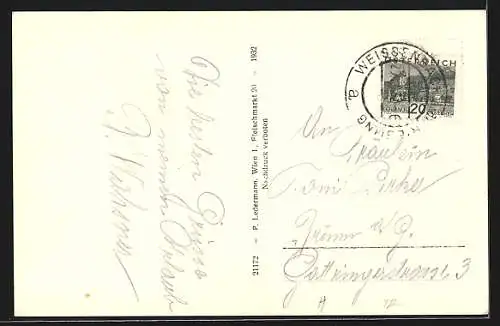 Die besten Grüsse
von meinem Urlaub
21172 – P. Ledermann, Wien 1, Fleischmarkt 20 – 1932
Nachdruck verboten
WEISSENK
ÖSTERREICH
20
a
An
Fräulein
Toni
Gattringerstrasse 3